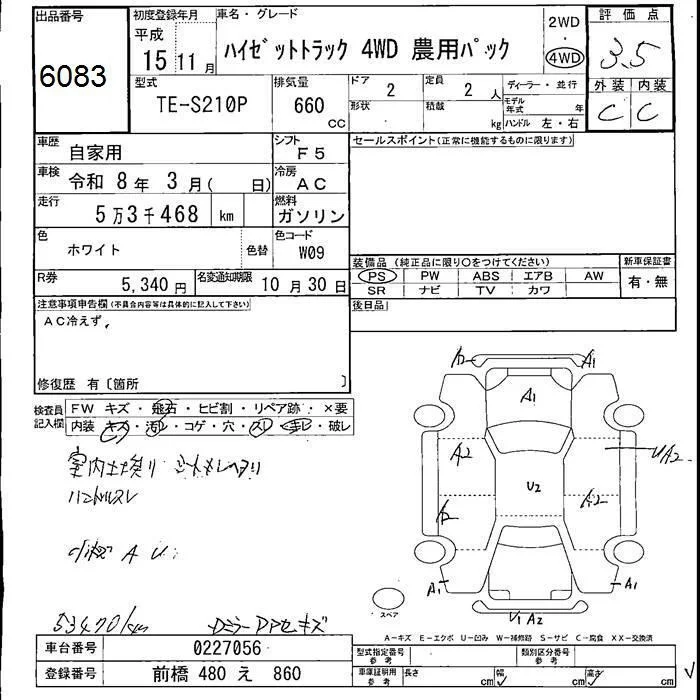 出品番号
6083
初度登録年月
平成
15年 11月
車名・グレード
ハイゼットトラック 4WD 農用パック
2WD
・
4WD
評価点
3.5
外装 内装
C C
型式
TE-S210P
排気量
660
CC
ドア
2
定員
2 人
形状
積載
kg
ディーラー・並行
モデル年式 年
ハンドル 左・右
車歴
自家用
シフト
F5
車検
令和 8年 3月( 日)
冷房
AC
走行
5万3千468 km
燃料
ガソリン
色
ホワイト
色替
色コード
W09
R券
5,340円
名変通知期限
10月30日
セールスポイント(正常に機能するものに限ります)
装備品 (純正品に限り○をつけてください)
PS PW ABS エアB AW
SR ナビ TV カワ
新車保証書
有・無
後日品
注意事項申告欄(不具合内容等は具体的に記入して下さい)
AC冷えず,
修復歴 有〔箇所 〕
検査員記入欄
FW キズ・飛石・ヒビ割・リペア跡・×要
内装 キズ・汚レ・コゲ・穴・スレ・キレ・破レ
ハンドルスレ
A U
53470km
A1
A1
A2
U2
UA2
A2
A1
A1
U1 A2
スペア
A-キズ E-エクボ U-凹み W-補修跡 S-サビ C-腐食 XX-交換済
車台番号
0227056
登録番号
前橋 480 え 860
型式指定番号
参考
類別区分番号
参考
車庫証明用
参考
長さ cm 幅 cm 高さ cm